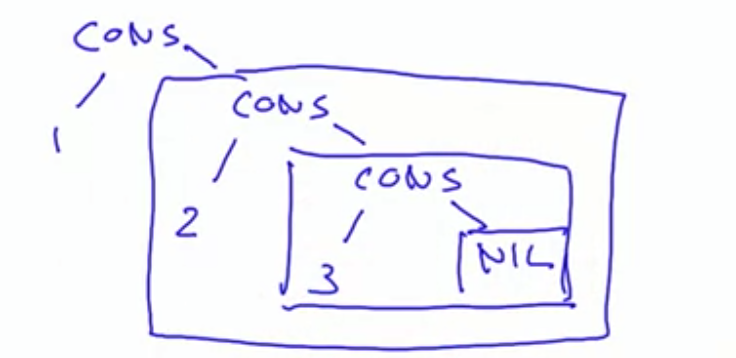 CONS
1
CONS
2
CONS
3
NIL